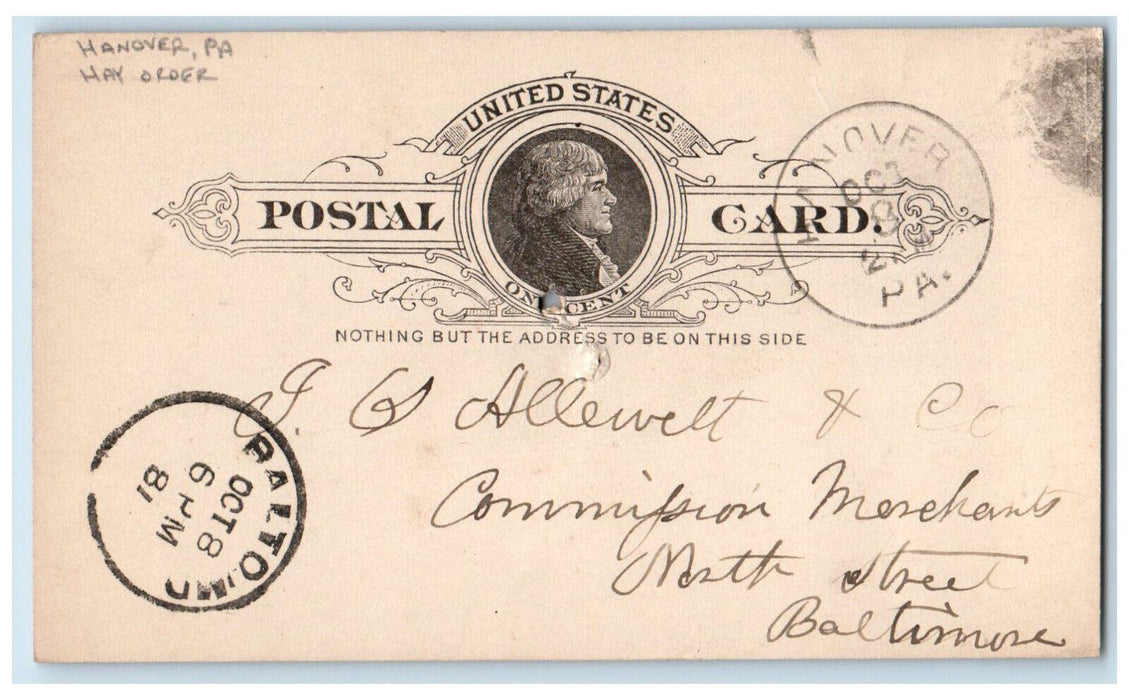 HANOVER, PA
HAY ORDER
UNITED STATES
POSTAL CARD.
ONE CENT
NOTHING BUT THE ADDRESS TO BE ON THIS SIDE
HANOVER
OCT
PA.
J. S Allewelt & Co
Commission Merchants
North Street
Baltimore
BALTO. MD
OCT 8
6 PM
81